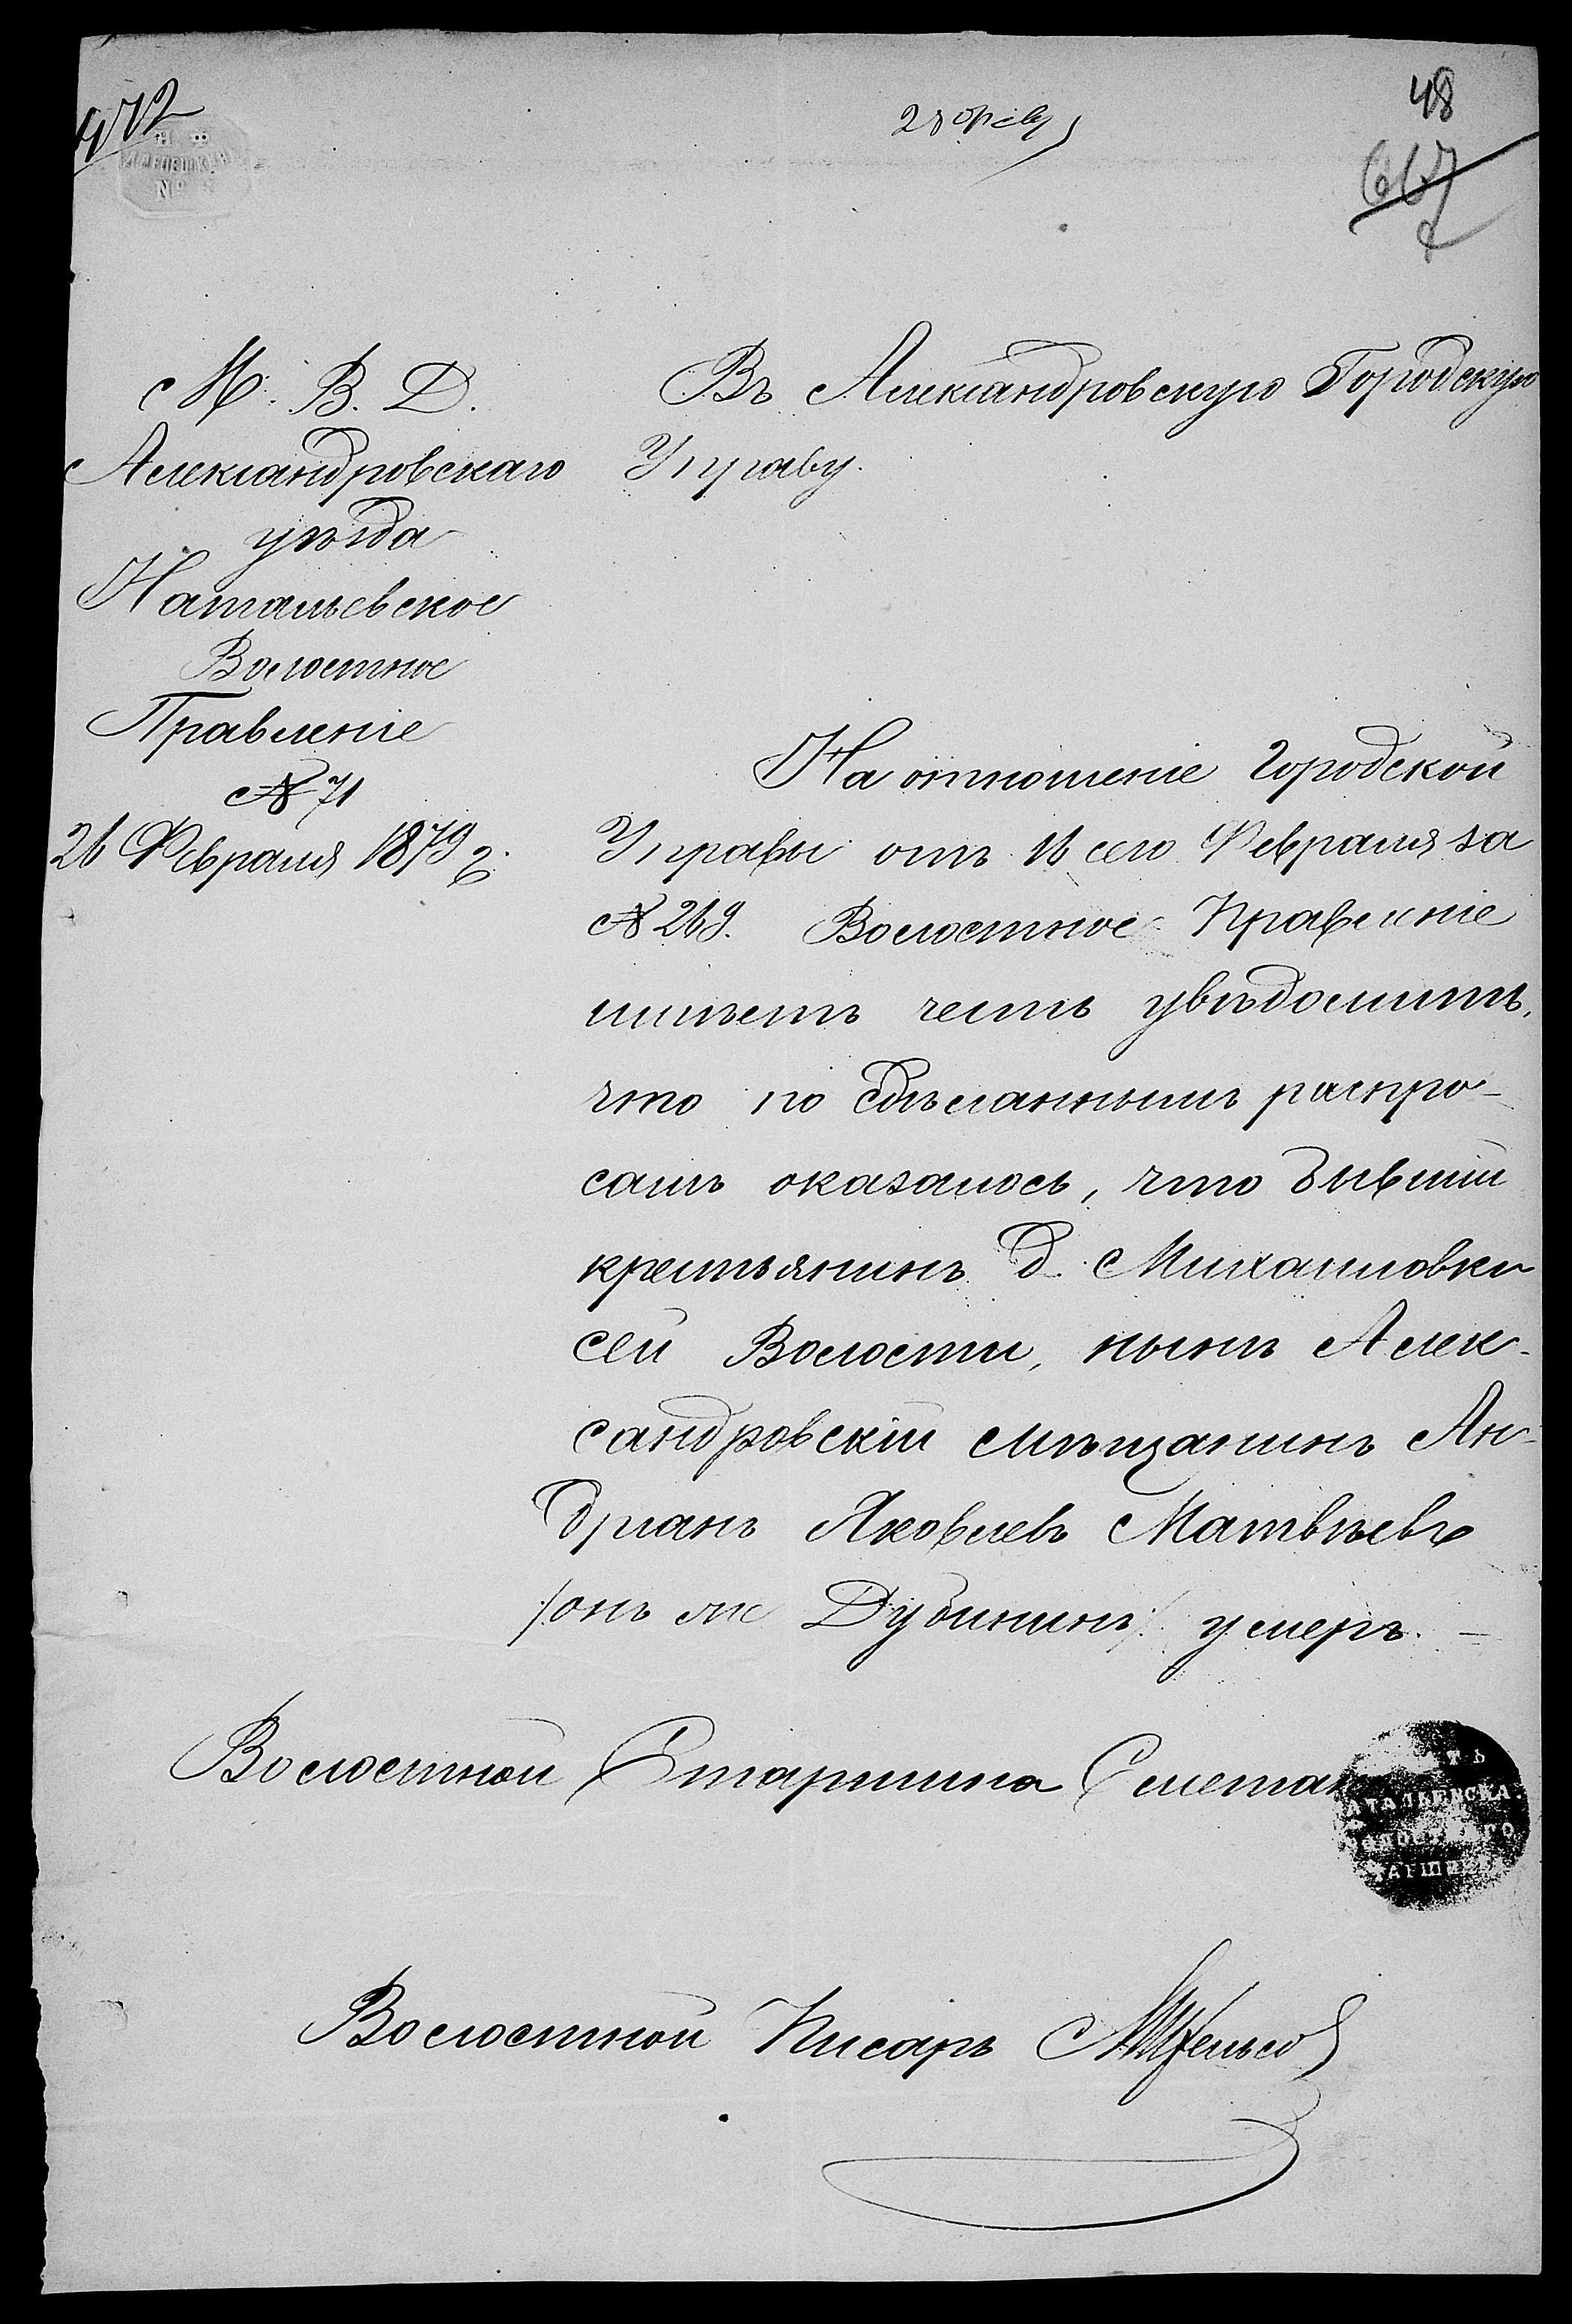 472
28 Февр
48
667
М. В. Д.
Александровскаго
уѣзда
Натальевское
Волостное
Правленіе
№ 71
26 Февраля 1879 г.
Въ Александровскую Городскую
Управу.
На отношеніе Городской
Управы отъ 16 сего Февраля за
№ 269. Волостное Правленіе
имѣетъ честь увѣдомить,
что по сдѣланнымъ распро-
самъ оказалось, что бывшій
крестьянинъ д. Михайловки
сей Волости, нынѣ Алек-
сандровскій мѣщанинъ Ан-
дріанъ Яковлевъ Матвѣевъ
/:онъ же Дубининъ:/ умеръ. —
Волостной Старшина Сметан
НАТАЛЬЕВСКА
ВОЛОСТНАГО
СТАРШИНЫ
Волостной Писарь